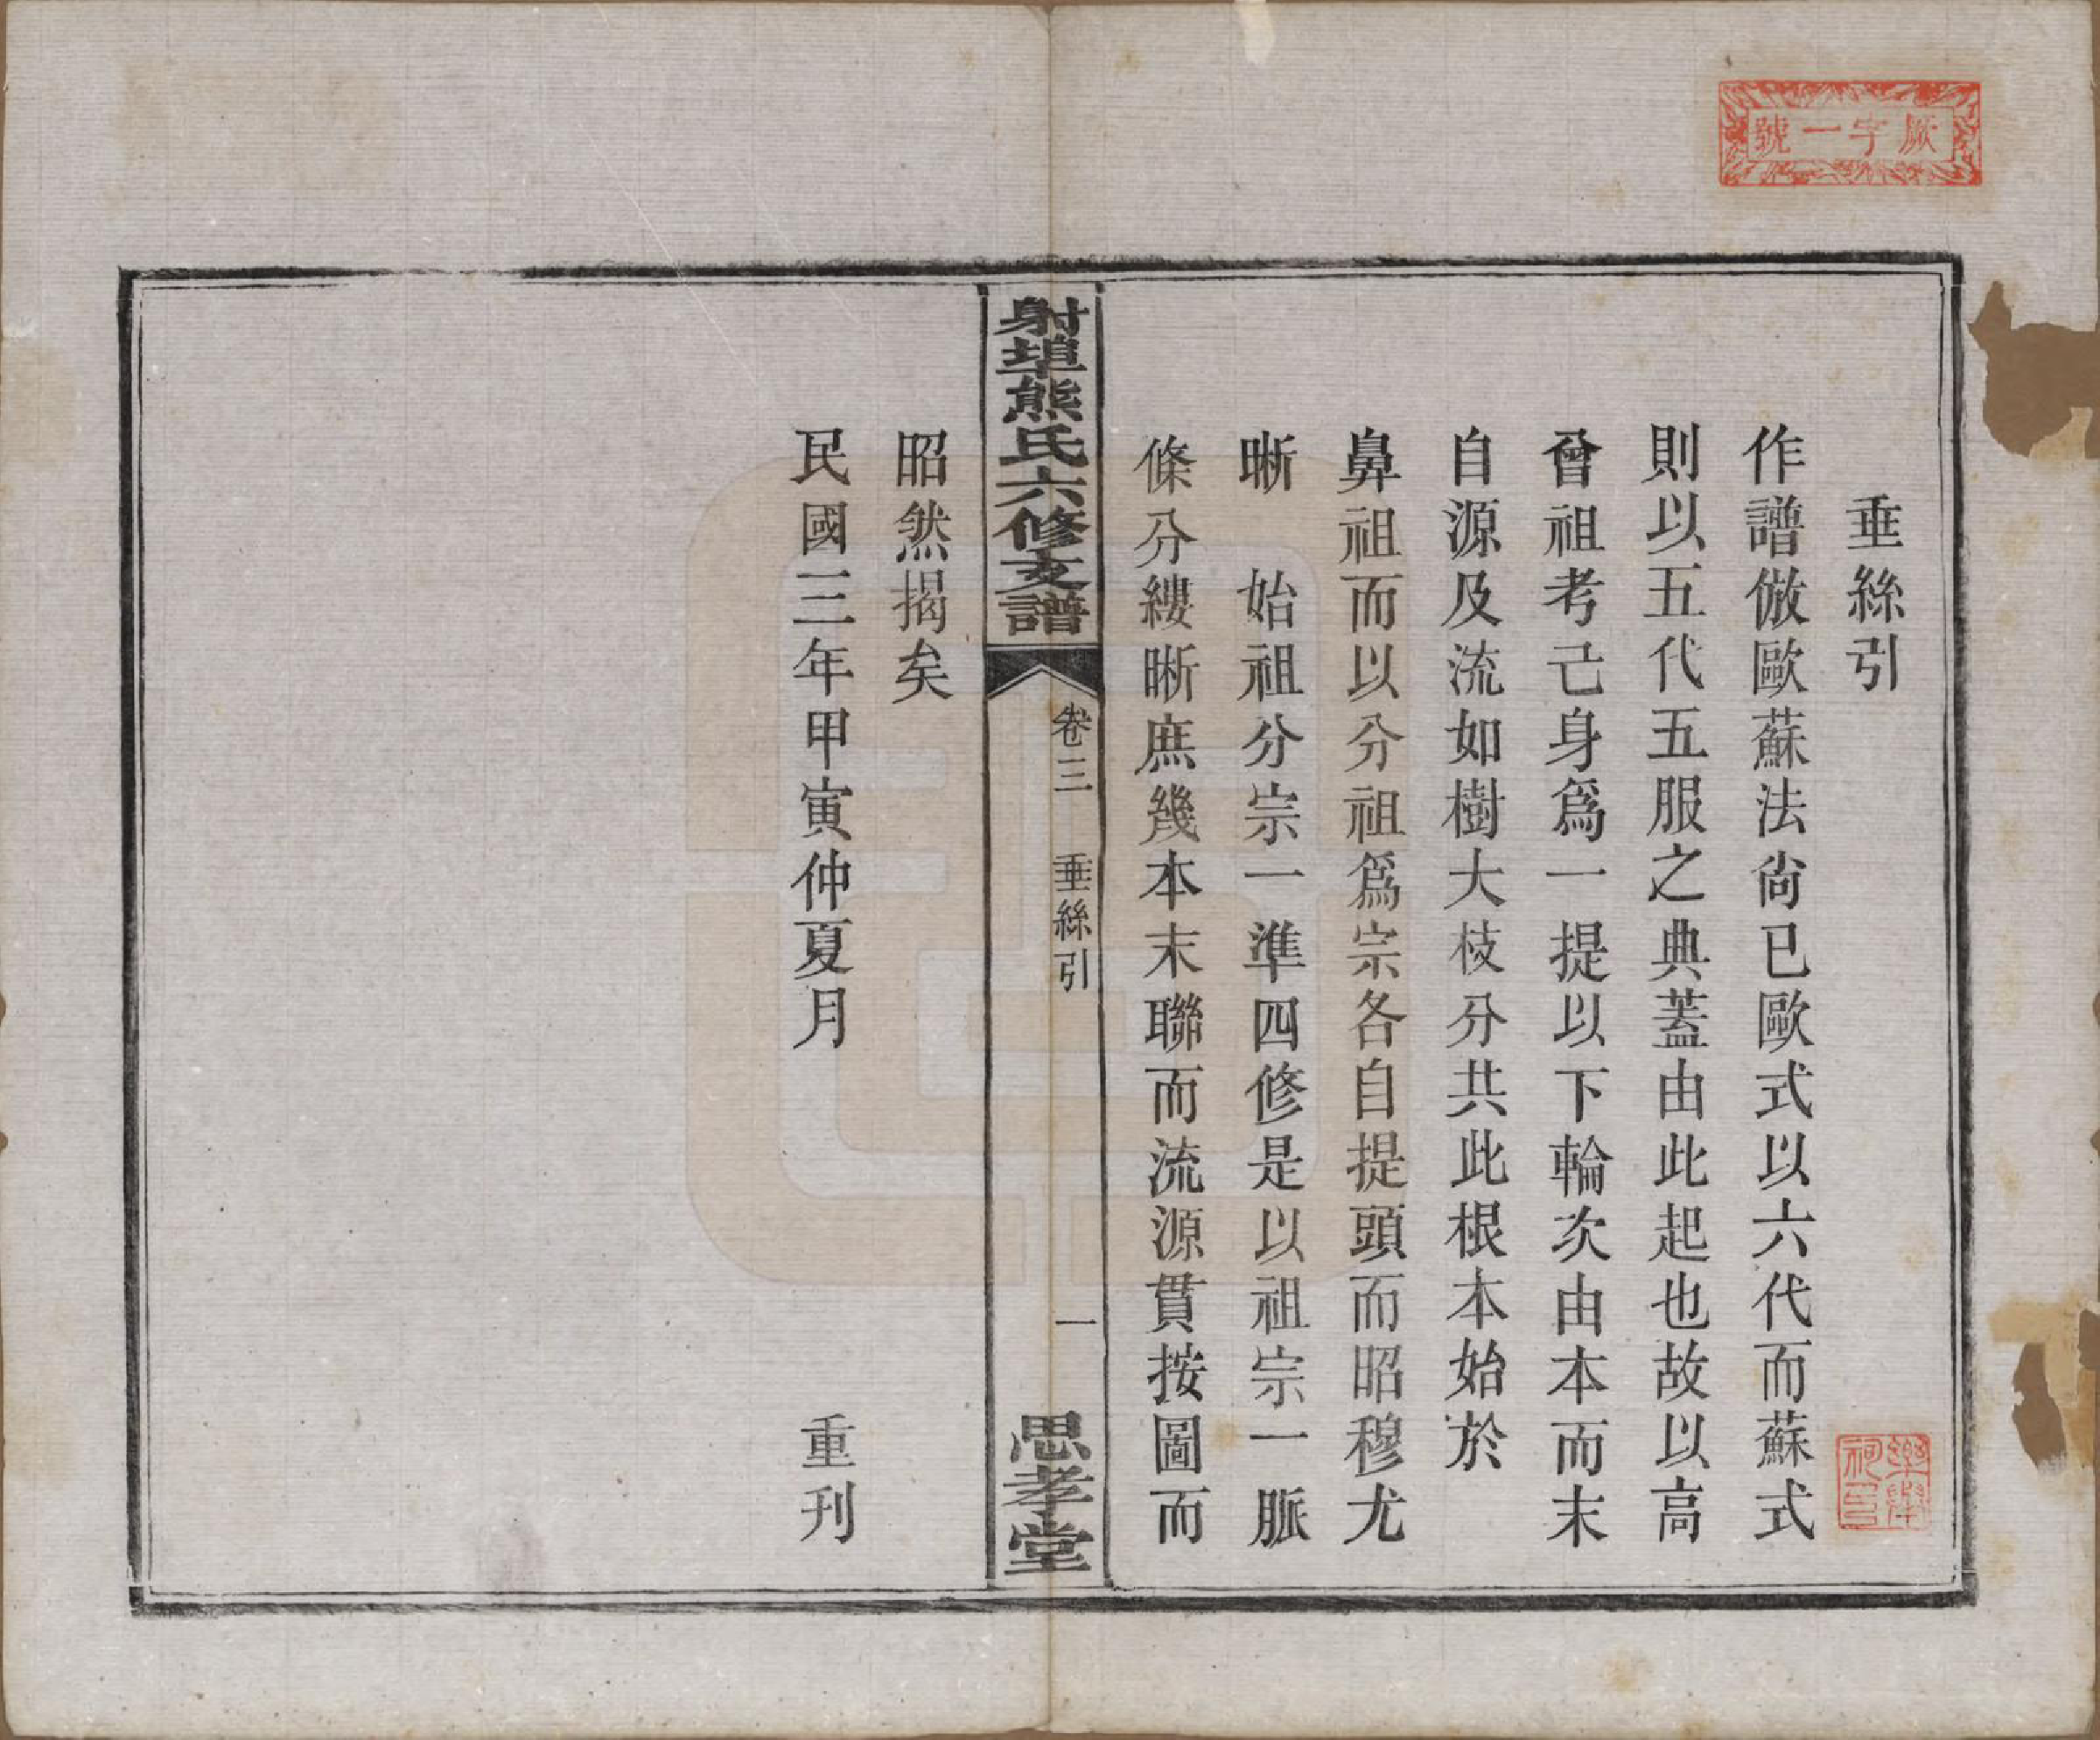 號一字厥
垂絲引
作譜倣歐蘇法尙已歐式以六代而蘇式
則以五代五服之典蓋由此起也故以高
曾祖考己身爲一提以下輪次由本而末
自源及流如樹大枝分共此根本始於
鼻祖而以分祖爲宗各自提頭而昭穆尤
晣　始祖分宗一準四修是以祖宗一脈
條分縷晣庶幾本末聯而流源貫按圖而
射埠熊氏六修支譜
卷三　垂絲引　一
思孝堂
昭然揭矣
民國三年甲寅仲夏月　重刊